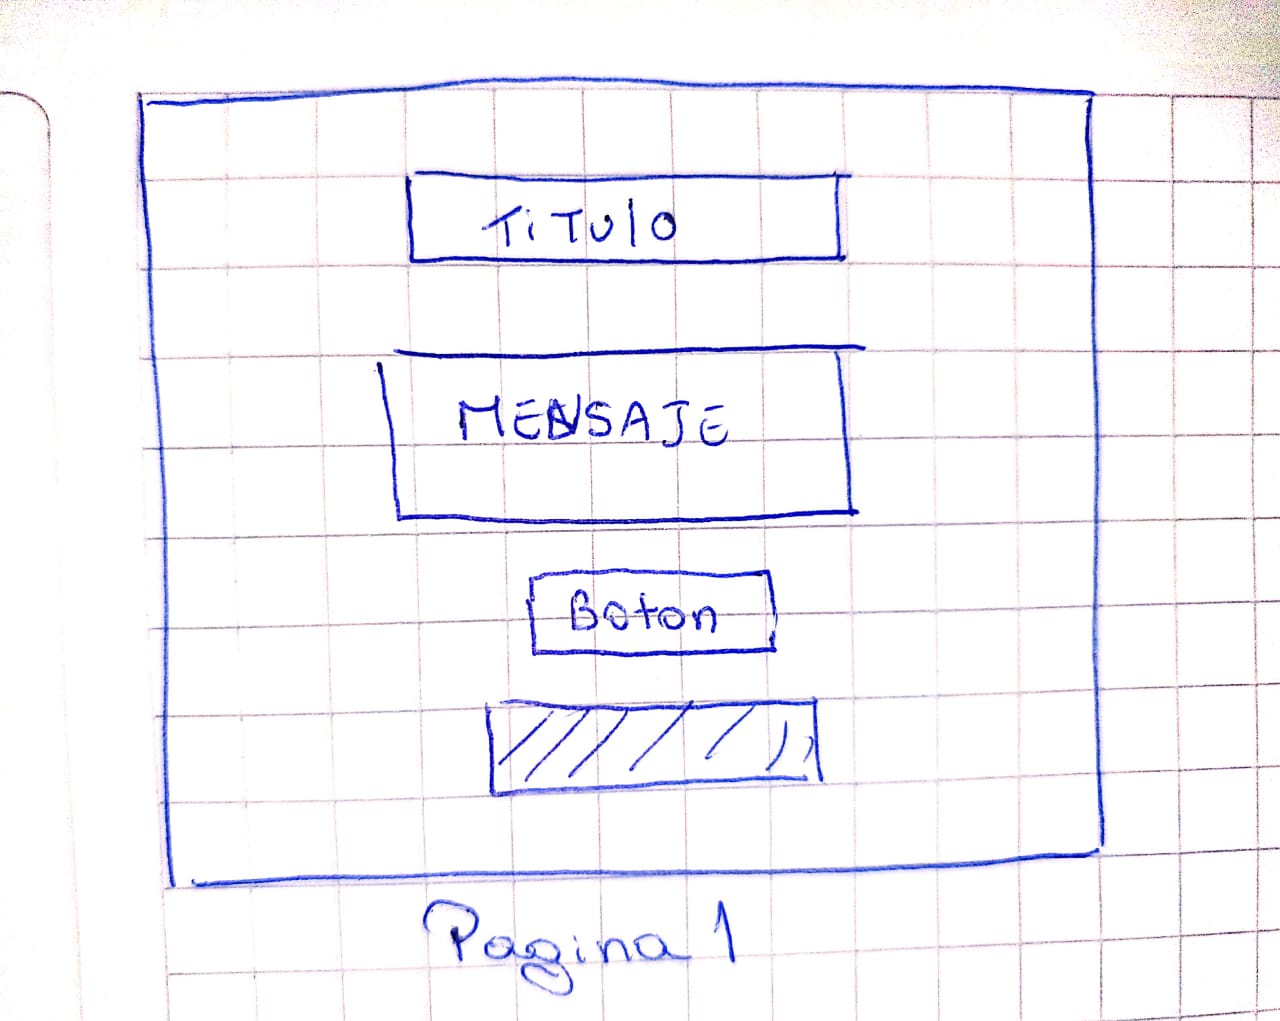 TiTulo
MENSAJE
Boton
Pagina 1